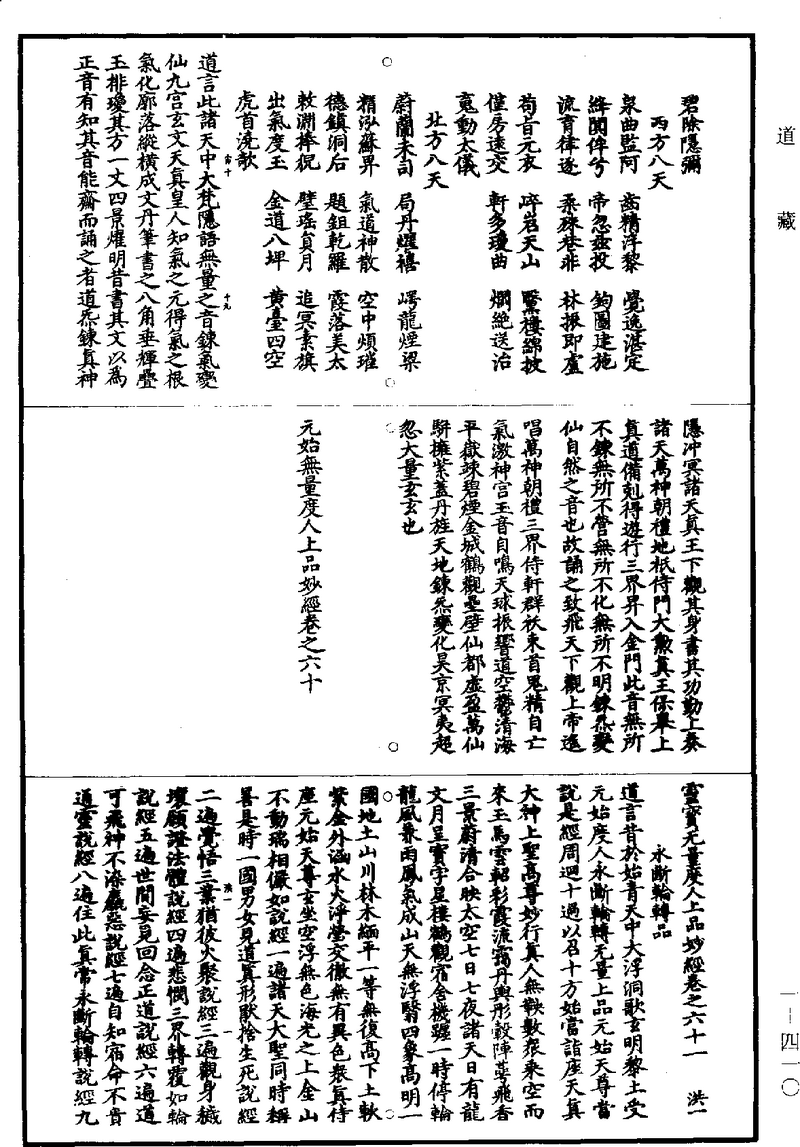 道藏
碧除隱彌
西方八天
泉曲監阿 齒精淳黎 覺逸湛定
絳闕俾兮 帝忽茲投 鉤圖建施
流育律逐 柔殊巷非 林振即盧
苟旨元衣 啐岩天山 鷖樓綿披
僅房遠交 軒多瓊曲 烱絶送治
寬動太儀
北方八天
蔚蘭未司 局丹燿禧 㟧龍煙梁
榗泓蘇昇 氣道神散 空中煩璀
德鎮洞后 題鉏乾羅 霞落美太
敕淵捧祝 璧瑤貟月 追冥素旗
出氣度玉 金道八坪 黄臺四空
虎首澆歆
道言此諸天中大梵隱語無量之音鍊氣變
仙九宫玄文天真皇人知氣之元得氣之根
氣化廓落縱横成文丹筆書之八角垂輝疊
玉排瓊其方一丈四景燿明昔書其文以爲
正音有知其音能齋而誦之者道炁鍊真神
隱沖冥諸天真王下觀其身書其功勤上奏
諸天萬神朝禮地祇侍門大勳真王保舉上
真道備剋得遊行三界昇入金門此音無所
不鍊無所不管無所不化無所不明鍊炁變
仙自然之音也故誦之致飛天下觀上帝遥
唱萬神朝禮三界侍軒群祅束首鬼精自亡
氣激神宫玉音自鳴天球振響道空鬱清海
平嶽竦碧煙金城鶴觀壘壁仙都虛盈萬仙
駢擁紫蓋丹旌天地鍊炁變化昊京冥夷超
忽大量玄玄也
元始無量度人上品妙經卷之六十
靈寶无量度人上品妙經卷之六十一 洪一
永斷輪轉品
道言昔於始青天中大浮洞歌玄明黎土受
元始度人永斷輪轉无量上品元始天尊當
說是經周迴十過以召十方始當詣座天真
大神上聖高尊妙行真人無鞅數衆乘空而
來玉馬雲軺彩霞流靄丹輿彤轂陣蕚飛香
三景蔚清合映太空七日七夜諸天日有龍
文月呈寶字星樓鶴觀宿舍機躔一時停輪
龍風暴雨風氣成山天無浮翳四象高明一
國地土山川林木緬平一等無復高下土軟
紫金外涵水火浄瑩交徹無有異色衆真侍
座元始天尊玄坐空浮無色海光之上金山
不動瑞相儼如說經一遍諸天大聖同時稱
善是時一國男女見道真形厭捨生死說經
二遍覺悟三業猶彼火聚說經三遍觀身穢
壞願證法體說經四遍悲憫三界轉覆如輪
說經五遍世間妄見回念正道說經六遍道
可飛神不染麤惡說經七遍自知宿命不貴
通靈說經八遍住此真常永斷輪轉說經九
一—四一〇